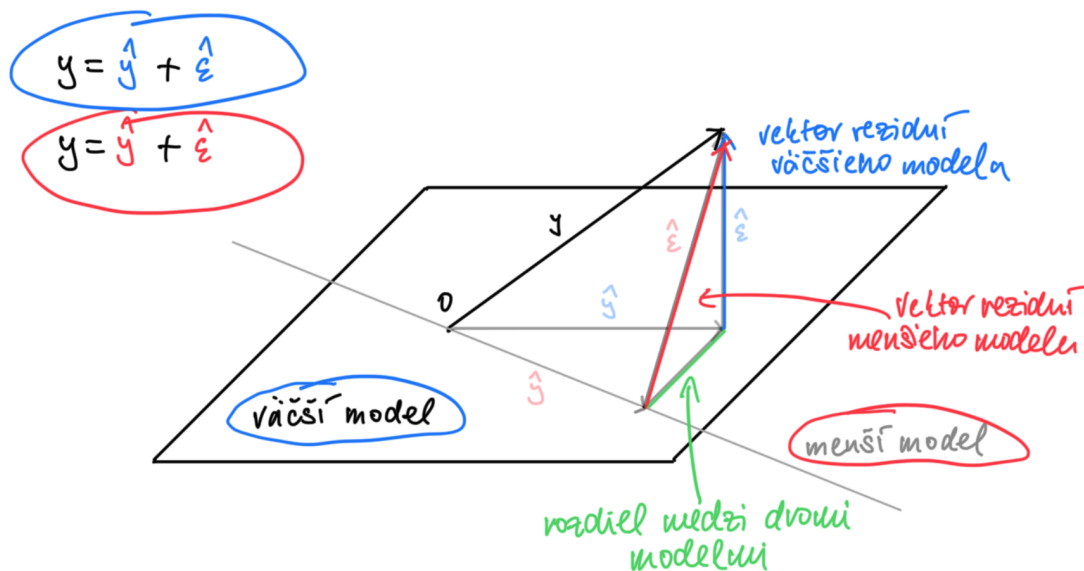 y = ŷ + ε̂
y = ŷ + ε̂
vektor rezidní
väčšieho modelu
y
ε̂
ε̂
0
ŷ
vektor rezidní
menšieho modelu
ŷ
väčší model
menší model
rozdiel medzi dvomi
modelmi